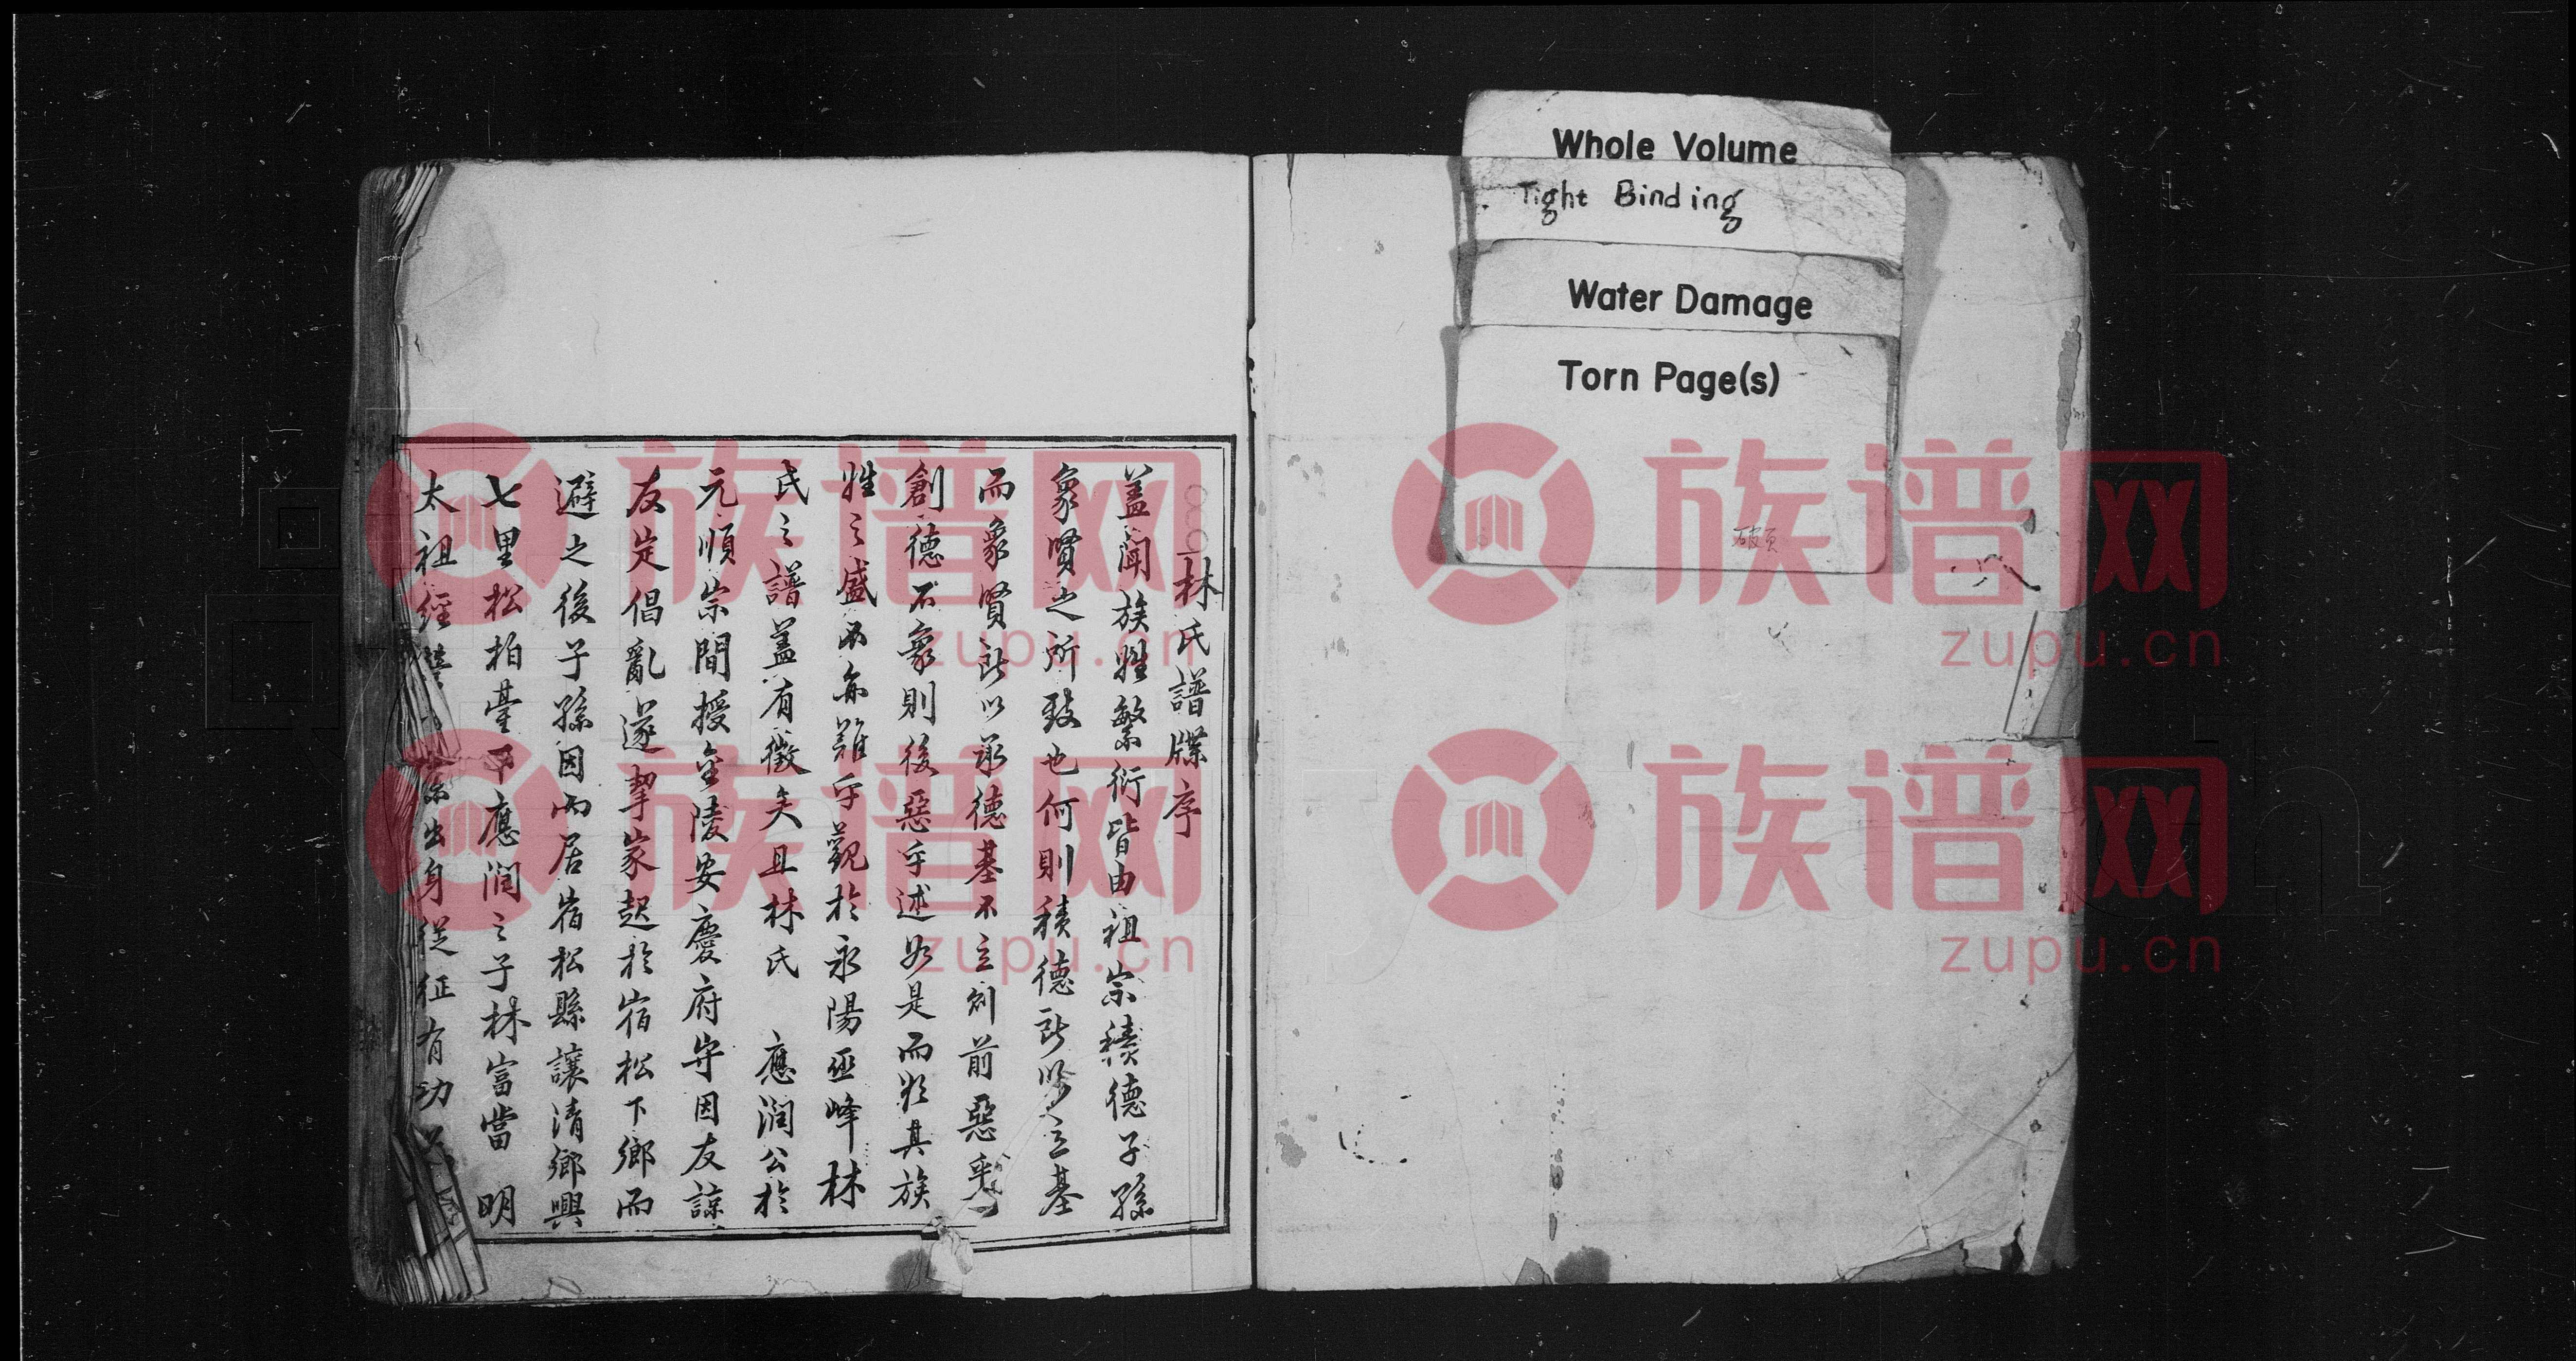 Whole Volume
Tight Binding
Water Damage
Torn Page(s)
破页
林氏譜牒序
蓋聞族姓繁衍皆由祖宗積德子孫
象賢之所致也何則積德所以立基
而象賢所以承德基不立則前惡乎
創德不象則後惡乎述如是而欲其族
姓之盛不亦難乎觀於永陽亟峰林
氏之譜蓋有徵矣且林氏 應潤公於
元順宗間授金陵安慶府守因友諒
友定倡亂遂挈家起於宿松下鄉而
避之後子孫因而居宿松縣讓清鄉興
七里松柏臺甲應潤之子林富當 明
太祖經 出身從征有功
族谱网
zupu.cn
族谱网
zupu.cn
族谱网
zupu.cn
族谱网
zupu.cn